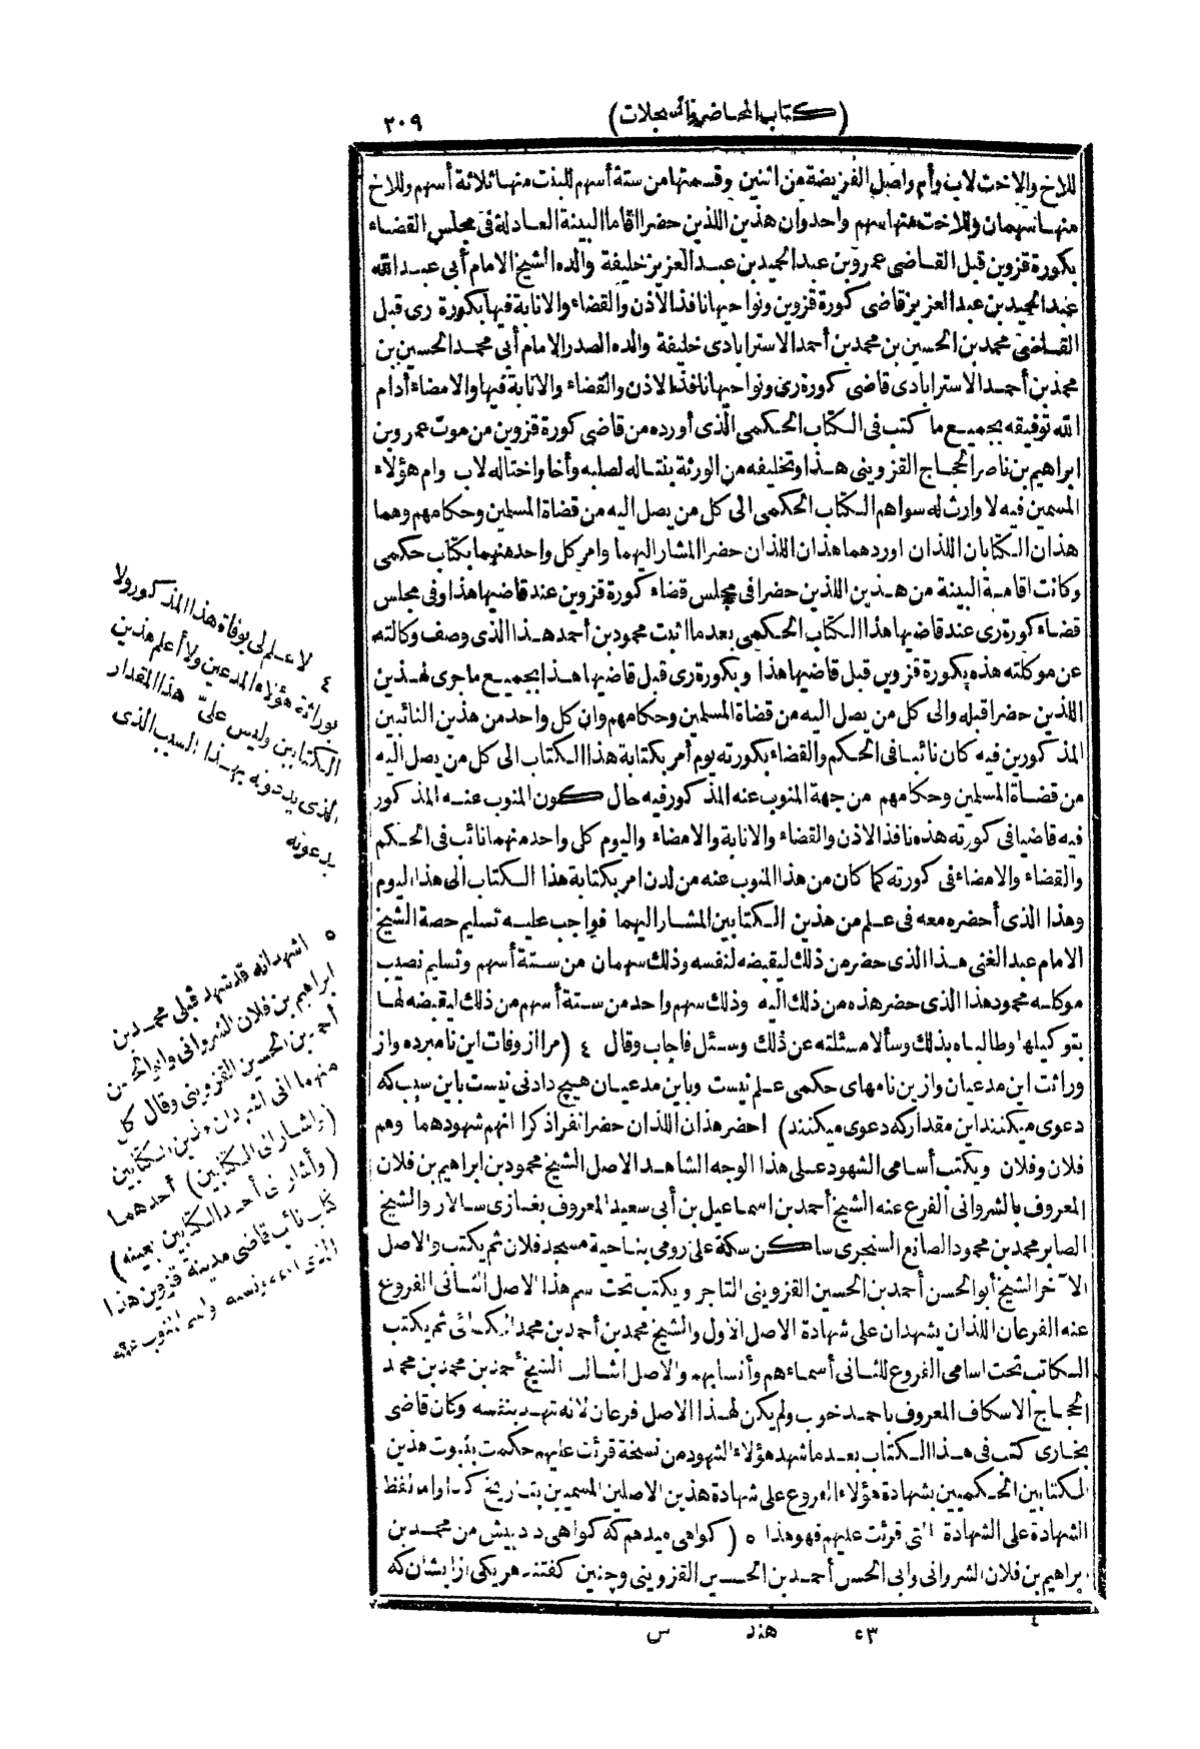 (كتاب المحاضر والسجلات)
٢٠٩
للاخ والاخت لاب وأم وأصل الفريضة من اثنين وقسمتها من ستة أسهم للبنت منها ثلاثة أسهم وللاخ
منها سهمان وللاخت منها سهم واحد وان هذين اللذين حضرا أقاما البينة العادلة في مجلس القضاء
بكورة قزوين قبل القاضى عمرو بن عبد الحميد بن عبد العزيز خليفة والده الشيخ الامام أبى عبد الله
عبد المجيد بن عبد العزيز قاضى كورة قزوين ونواحيها نافذ الاذن والقضاء والانابة فيها بكورة رى قبل
القاضى محمد بن الحسين بن محمد بن أحمد الاسترابادى خليفة والده الصدر الامام أبى محمد الحسين بن
محمد بن أحمد الاسترابادى قاضى كورة رى ونواحيها نافذ الاذن والقضاء والانابة فيها والامضاء أدام
الله توفيقه بجميع ما كتب فى الكتاب الحكمى الذى أورده من قاضى كورة قزوين من موت عمرو بن
ابراهيم بن ناصر الحجاج القزوينى هذا وتخليفه من الورثة بنتا له لصلبه وأخا واختا له لاب وام هؤلاء
المسمين فيه لا وارث له سواهم الكتاب الحكمى الى كل من يصل اليه من قضاة المسلمين وحكامهم وهما
هذان الكتابان اللذان اوردهما هذان اللذان حضرا المشار اليهما وامر كل واحد منهما بكتاب حكمى
وكانت اقامة البينة من هذين اللذين حضرا فى مجلس قضاء كورة قزوين عند قاضيها هذا وفى مجلس
قضاء كورة رى عند قاضيها هذا الكتاب الحكمى بعد ما اثبت محمود بن أحمد هذا الذى وصف وكالته
عن موكلته هذه بكورة قزوين قبل قاضيها هذا وبكورة رى قبل قاضيها هذا بجميع ما جرى لهذين
اللذين حضرا قبله والى كل من يصل اليه من قضاة المسلمين وحكامهم وان كل واحد من هذين النائبين
المذكورين فيه كان نائبا فى الحكم والقضاء بكورته يوم أمر بكتابة هذا الكتاب الى كل من يصل اليه
من قضاة المسلمين وحكامهم من جهة المنوب عنه المذكور فيه حال كون المنوب عنه المذكور
فيه قاضيا فى كورته هذه نافذ الاذن والقضاء والانابة والامضاء واليوم كل واحد منهما نائب فى الحكم
والقضاء والامضاء فى كورته كما كان من هذا المنوب عنه من لدن امر بكتابة هذا الكتاب الى هذا اليوم
وهذا الذى أحضره معه فى علم من هذين الكتابين المشار اليهما فواجب عليه تسليم حصة الشيخ
الامام عبد الغنى هذا الذى حضر من ذلك ليقبضه لنفسه وذلك سهمان من ستة أسهم وتسليم نصيب
موكلة محمود هذا الذى حضر هذه من ذلك اليه وذلك سهم واحد من ستة أسهم من ذلك ليقبضه لها
بتوكيلها وطالباه بذلك وسألا مسئلته عن ذلك وسئل فاجاب وقال ٤ (مرا از وفات اين نامبرده واز
وراثت اين مدعيان وازين نامهاى حكمى علم نيست وباين مدعيان هيچ دادنى نيست باين سبب كه
دعوى ميكنند اين مقدار كه دعوى ميكنند) احضر هذان اللذان حضرا نفرا ذكرا انهم شهودهما وهم
فلان وفلان ويكتب أسامى الشهود على هذا الوجه الشاهد الاصل الشيخ محمود بن ابراهيم بن فلان
المعروف بالشروانى الفرع عنه الشيخ أحمد بن اسماعيل بن أبى سعيد المعروف بغازى سالار والشيخ
الصابر محمد بن محمود الصانع السنجرى ساكن سكة على رومى بناحية مسجد فلان ثم يكتب والاصل
الآخر الشيخ أبو الحسن أحمد بن الحسين القزوينى التاجر ويكتب تحت سم هذا الاصل الثانى الفروع
عنه الفرعان اللذان يشهدان على شهادة الاصل الاول والشيخ محمد بن أحمد بن محمد الكسائى ثم يكتب
الكاتب تحت اسامى الفروع للثانى أسماءهم وأنسابهم والاصل الثالث الشيخ أحمد بن محمد بن محمد
الحجاج الاسكاف المعروف باحمد خوب ولم يكن لهذا الاصل فرعان لانه شهد بنفسه وكان قاضى
بخارى كتب فى هذا الكتاب بعد ما شهد هؤلاء الشهود من نسخة قرئت عليهم حكمت بثبوت هذين
الكتابين الحكميين بشهادة هؤلاء الفروع على شهادة هذين الاصلين المسميين بتاريخ كذا واما لفظ
الشهادة على الشهادة التى قرئت عليهم فهو هذا ٥ (كواهى ميدهم كه كواهى داد پيش من محمد بن
ابراهيم بن فلان الشروانى وابى الحسن أحمد بن الحسين القزوينى وچنين كفتند هريكى از ايشان كه
٤ لا علم لى بوفاة هذا المذكور ولا
بوراثة هؤلاء المدعين ولا أعلم هذين
الكتابين وليس علىّ هذا المقدار
الذى يدعونه بهذا السبب الذى
يدعونه
٥ اشهد انه قد شهد قبلى محمد بن
ابراهيم بن فلان الشروانى وابو الحسن
أحمد بن الحسين القزوينى وقال كل
منهما انى اشهد ان هذين الكتابين
(واشار الى الكتابين) أحدهما
(وأشار الى أحد الكتابين بعينه)
كتاب نائب قاضى مدينة قزوين هذا
الذى اسمه ونسبه واسم المنوب عنه
٢٣ هند س